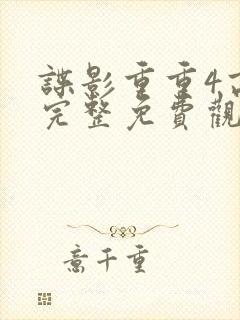 諜影重重4高
完整免費觀
意千重